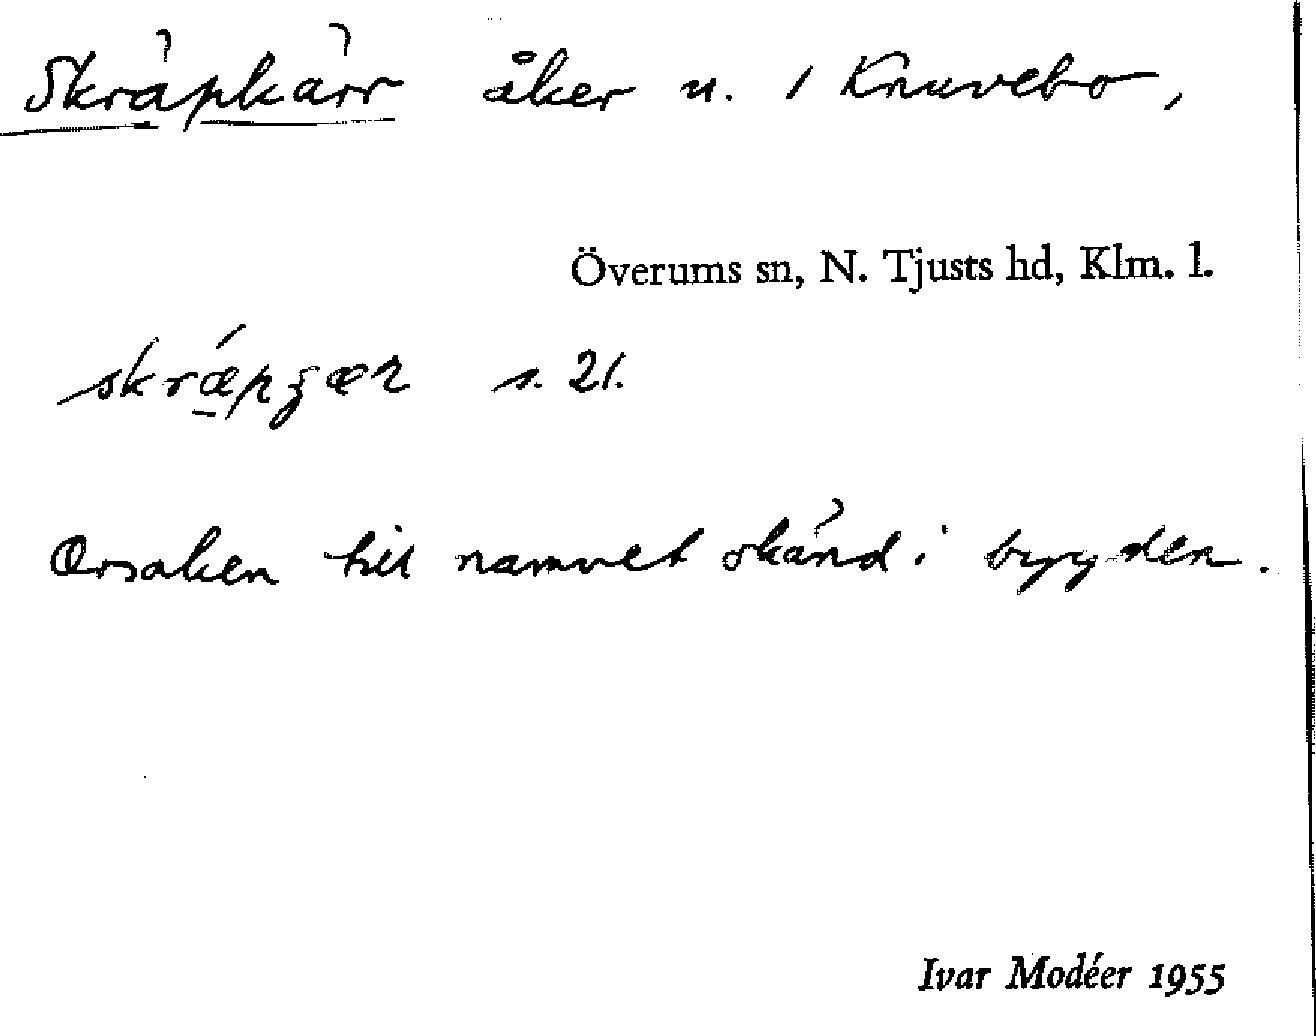 Skräpkärr åker u. 1 Knuvebo,
Överums sn, N. Tjusts hd, Klm. l.
s. 21.
Orsaken till namnet okänd i bygden.
Ivar Modéer 1955